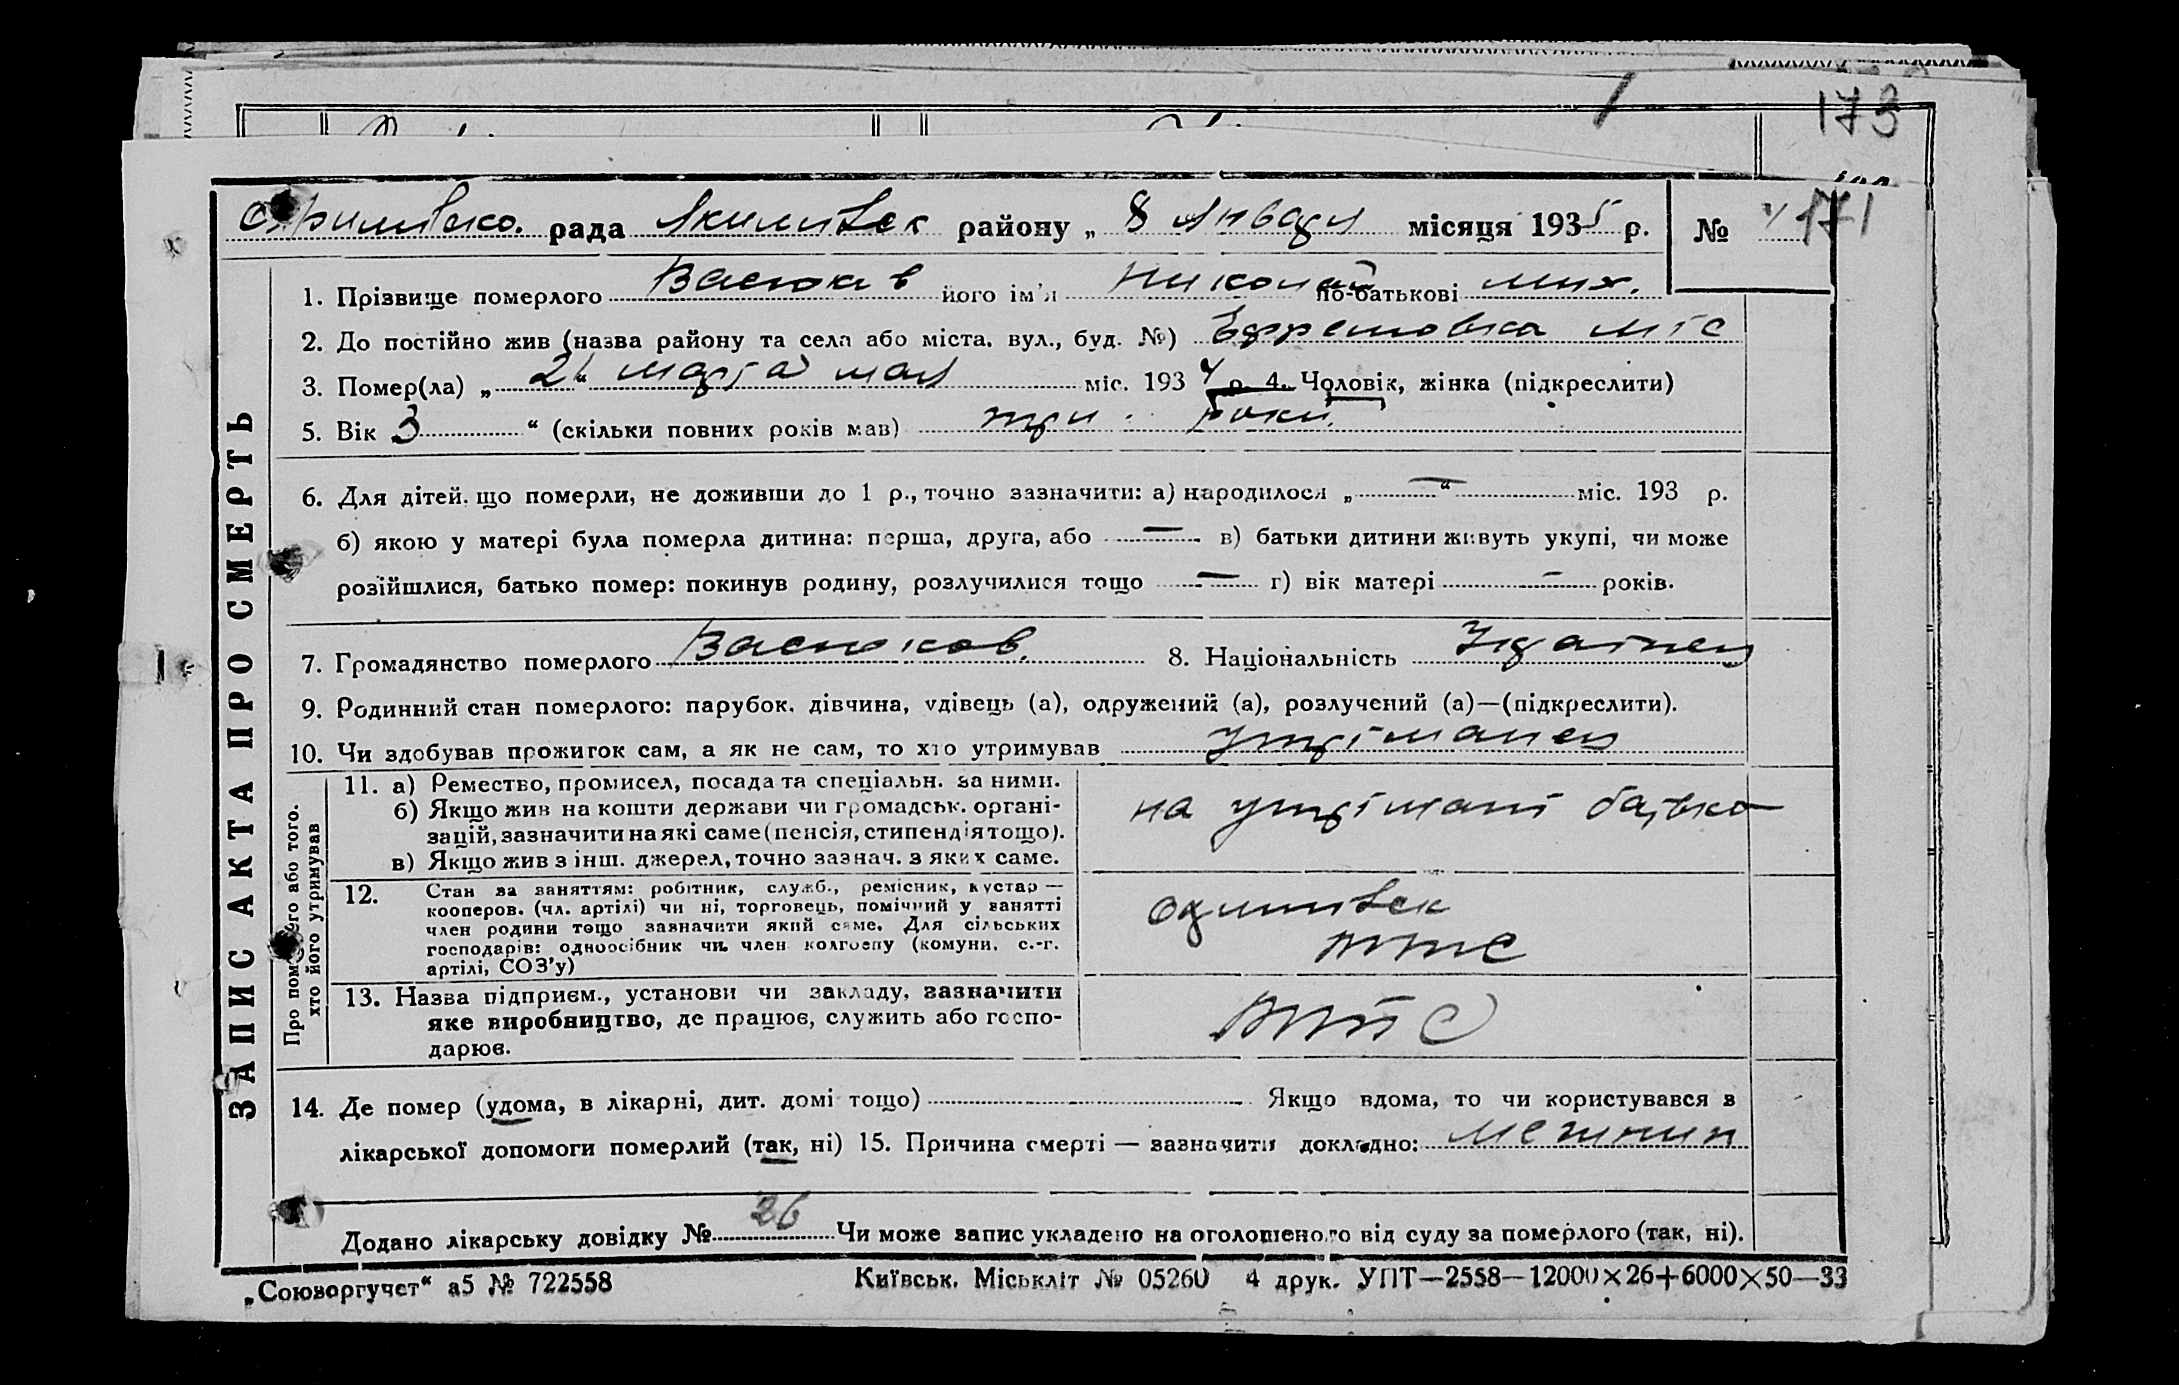 173
рада Якимівск району „ 8 Января місяця 1935 р. № 171
1. Прізвище померлого Васюков його ім'я Николай по-батькові Мих.
2. До постійно жив (назва району та села або міста, вул., буд. №) Ефремовка МТС
3. Помер(ла) „ 21 “ марта мая міс. 1934 р. 4. Чоловік, жінка (підкреслити)
5. Вік 3 “ (скільки повних років мав) три роки.
6. Для дітей, що померли, не доживши до 1 р., точно зазначити: а) народилося „ — “ міс. 193 р.
б) якою у матері була померла дитина: перша, друга, або — в) батьки дитини живуть укупі, чи може
розійшлися, батько помер: покинув родину, розлучилися тощо — г) вік матері — років.
7. Громадянство померлого Васюков. 8. Національність
9. Родинний стан померлого: парубок, дівчина, удівець (а), одружений (а), розлучений (а)—(підкреслити).
10. Чи здобував прожиток сам, а як не сам, то хто утримував утріманец
11. а) Ремество, промисел, посада та спеціальн. за ними.
б) Якщо жив на кошти держави чи громадськ. органі-
зацій, зазначити на які саме (пенсія, стипендія тощо).
в) Якщо жив з інш. джерел, точно зазнач. з яких саме.
на утрімані батька
12. Стан за заняттям: робітник, служб., ремісник, кустар —
кооперов. (чл. артілі) чи ні, торговець, помічний у занятті
член родини тощо зазначити який саме. Для сільських
господарів: одноосібник чи член колгоспу (комуни, с.-г.
артілі, СОЗ'у)
МТС
13. Назва підприєм., установи чи закладу, зазначити
яке виробництво, де працює, служить або госпо-
дарює.
МТС
14. Де помер (удома, в лікарні, дит. домі тощо) Якщо вдома, то чи користувався з
лікарської допомоги померлий (так, ні) 15. Причина смерті — зазначити докладно:
Додано лікарську довідку № 26 Чи може запис укладено на оголошеного від суду за померлого (так, ні).
„Союзоргучет“ а5 № 722558 Київськ. Міськліт № 05260 4 друк. УПТ—2558—12000×26+6000×50—33
ЗАПИС АКТА ПРО СМЕРТЬ
Про померлого або того,
хто його утримував